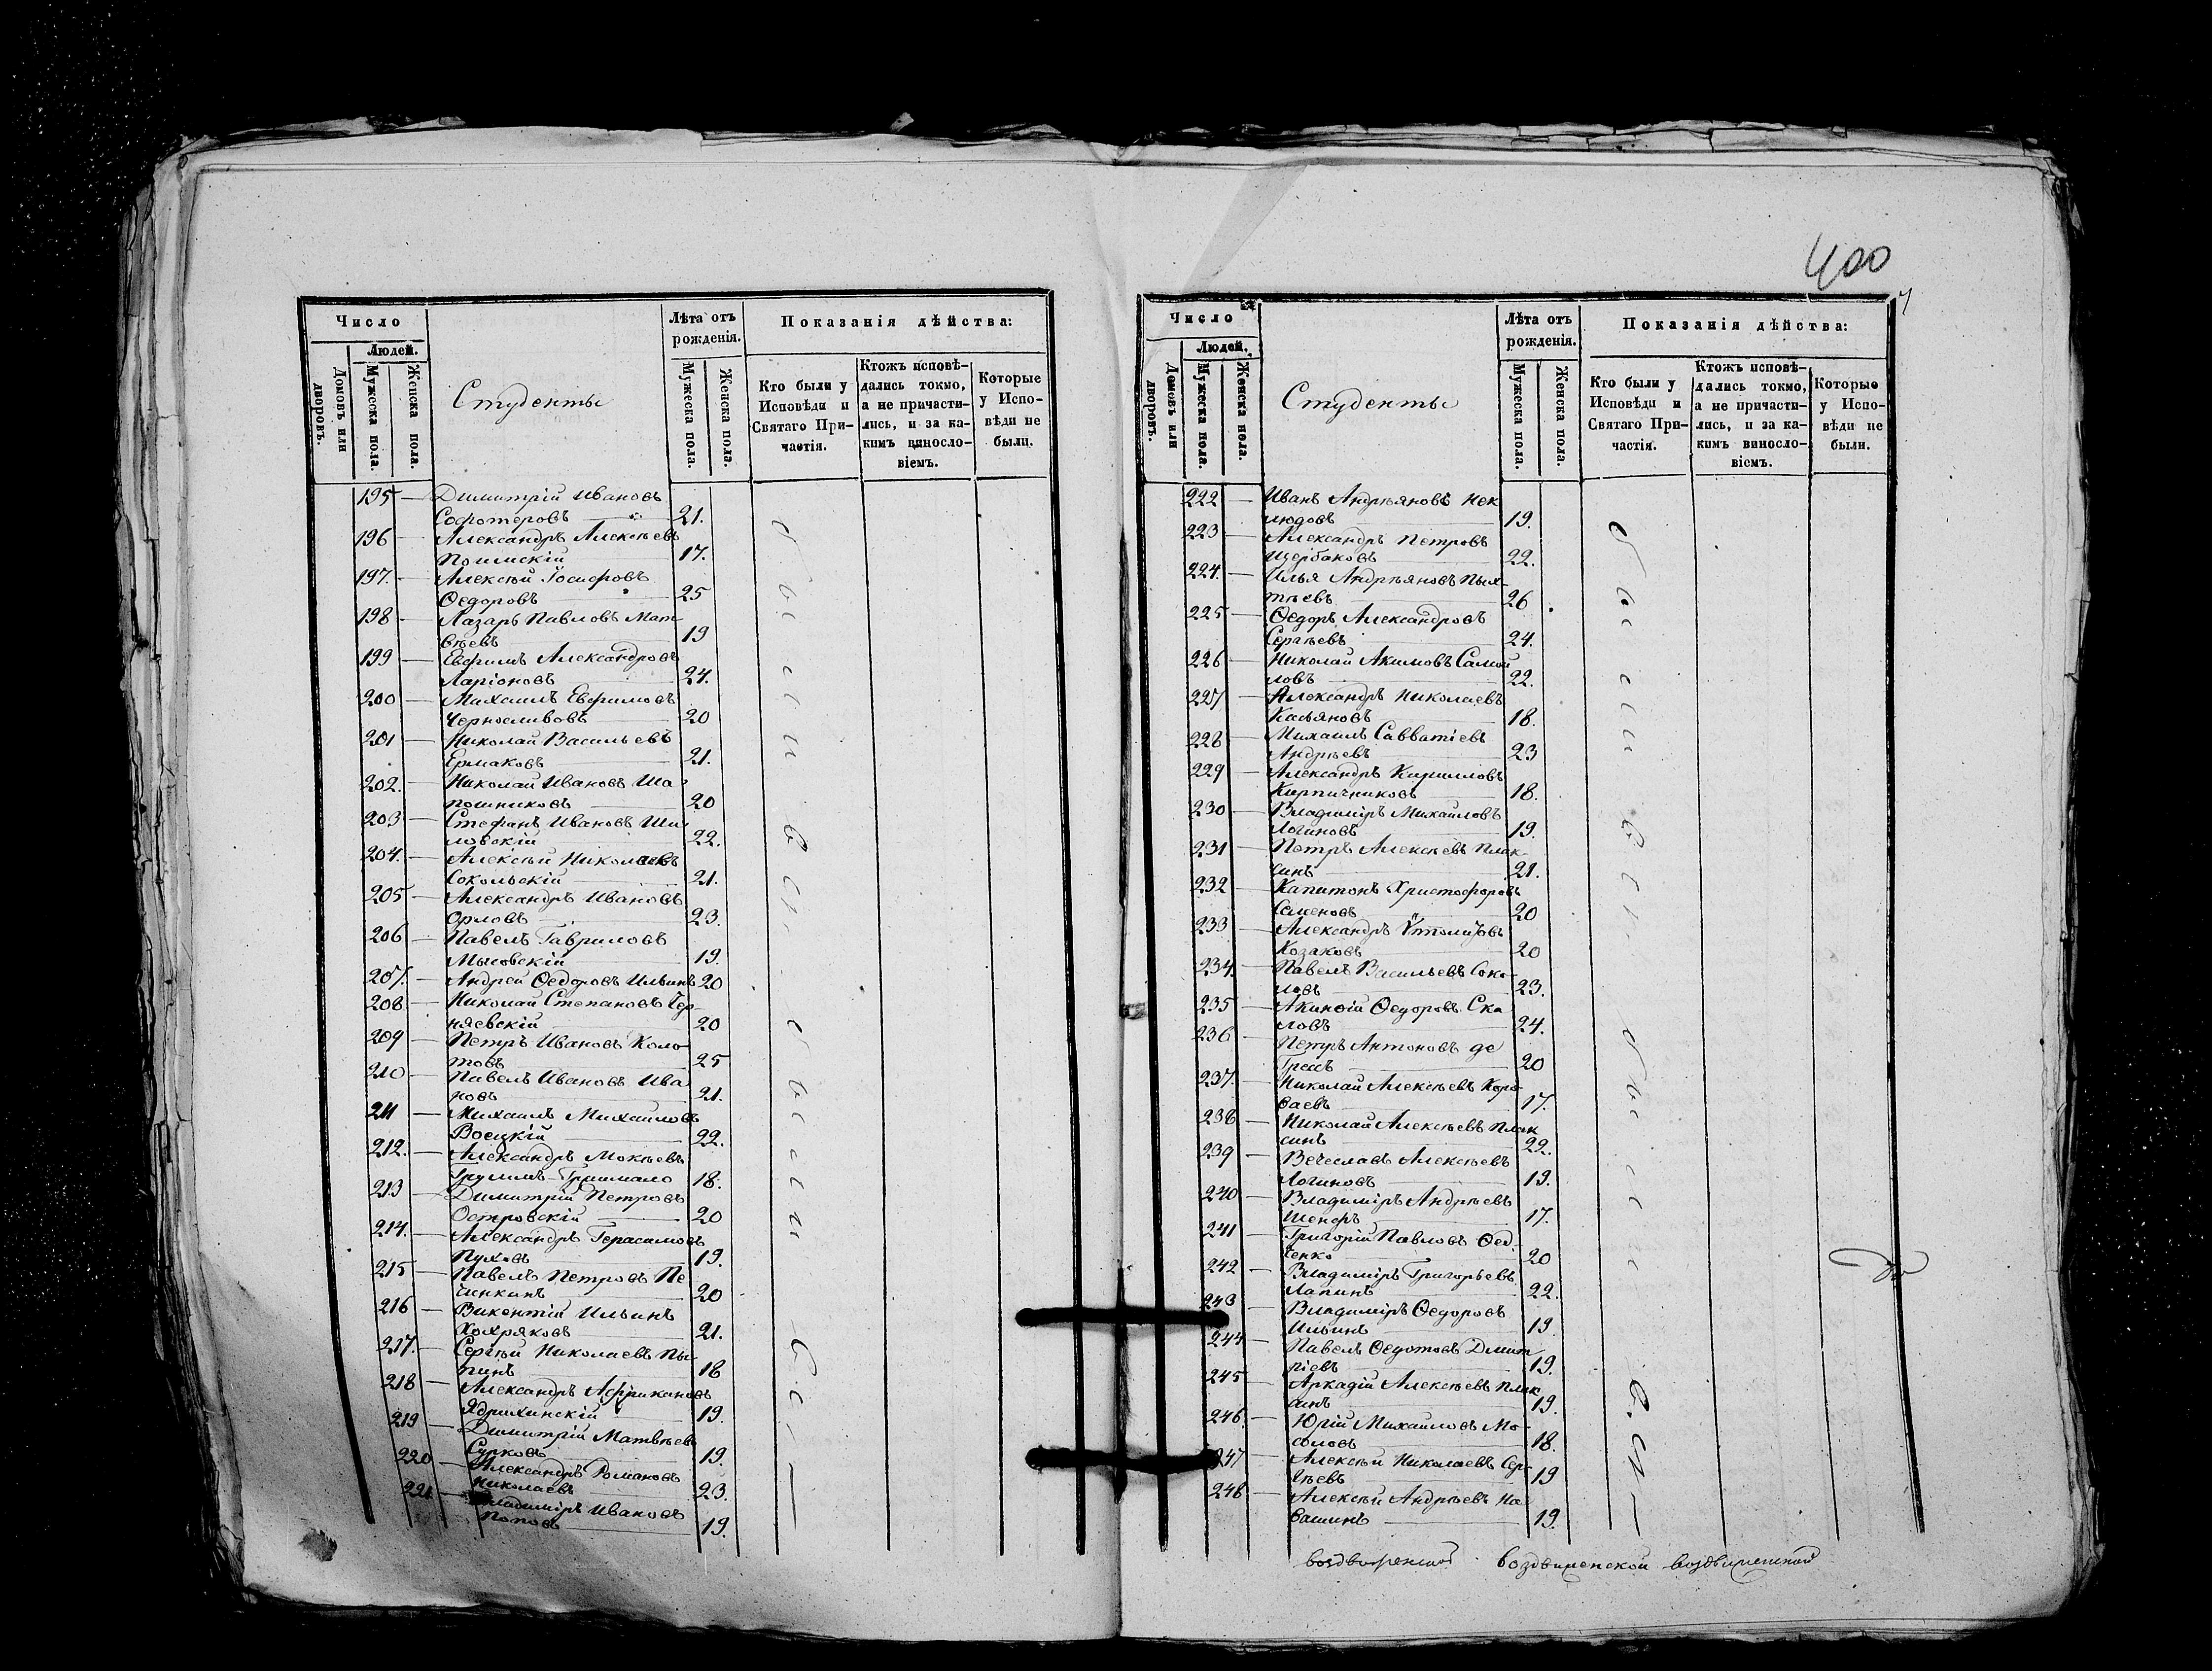 400
Число
Людей.
Домовъ или дворовъ.
Мужеска пола.
Женска пола.
Студенты
Лѣта отъ рожденія.
Мужеска пола.
Женска пола.
Показанія дѣйства:
Кто были у Исповѣди и Святаго Причастія.
Ктожъ исповѣдались токмо, а не причастились, и за какимъ винословіемъ.
Которые у Исповѣди не были.
195 — Димитрій Ивановъ
Софотеровъ — 21.
196 — Александръ Алексѣевъ
Поимскій 17.
197. — Алексѣй Іосифовъ
Ѳедоровъ — 25
198 — Лазарь Павловъ Мат
вѣевъ 19
199 — Евфимъ Александровъ
Ларіоновъ — 24.
200 — Михаилъ Евфимовъ
Черносливовъ — 20
201 — Николай Васильевъ
Ермаковъ — 21.
202. — Николай Ивановъ Ша
пошниковъ — 20
203 — Стефанъ Ивановъ Ши
ловскій 22.
204. — Алексѣй Николаевъ
Сокольскій — 21.
205 — Александръ Ивановъ
Орловъ — 23.
206 — Павелъ Гавриловъ
Мысовскій — 19.
207. — Андрей Ѳедоровъ Ильинъ 20
208 — Николай Степановъ Чер-
няевскій 20
209 — Петръ Ивановъ Коло
товъ 25
210 — Павелъ Ивановъ Ива
новъ 21.
211 — Михаилъ Михайловъ
Воецкій — 22.
212. — Александръ Мокѣевъ
Грумъ-Гримайло 18.
213 — Димитрій Петровъ
Островскій — 20
214. — Александръ Герасимовъ
Пуховъ — 19.
215 — Павелъ Петровъ Пе
чинкинъ — 20
216 — Викентій Ильинъ
Хохряковъ — 21.
217. — Сергѣй Николаевъ Пы-
пинъ 18
218 — Александръ Африкановъ
Ядрихинскій — 19.
219 — Димитрій Матвѣевъ
Сурковъ — 19.
220 — Александръ Романовъ
Николаевъ — 23.
221 — Владиміръ Ивановъ
Поповъ — 19.
Число
Людей.
Домовъ или дворовъ.
Мужеска пола.
Женска пола.
Студенты
Лѣта отъ рожденія.
Мужеска пола.
Женска пола.
Показанія дѣйства:
Кто были у Исповѣди и Святаго Причастія.
Ктожъ исповѣдались токмо, а не причастились, и за какимъ винословіемъ.
Которые у Исповѣди не были.
222 — Иванъ Андрѣяновъ Нек
людовъ — 19.
223 — Александръ Петровъ
Щербаковъ — 22.
224. — Илья Андрѣяновъ Пых-
тѣевъ — 26
225 — Ѳедоръ Александровъ
Сергѣевъ — 24.
226 — Николай Акимовъ Самой
ловъ — 22.
227 — Александръ Николаевъ
Касьяновъ — 18.
228 — Михаилъ Савватіевъ
Андрѣевъ — 23
229 — Александръ Кирилловъ
Кирпичниковъ — 18.
230 — Владиміръ Михайловъ
Логиновъ — 19.
231 — Петръ Алексѣевъ Плак-
синъ — 21.
232 — Капитонъ Христофоровъ
Семеновъ — 20
233 — Александръ
Козаковъ — 20
234. — Павелъ Васильевъ Соко-
ловъ — 23.
235 — Акинѳій Ѳедоровъ Ска
ловъ — 24.
236 — Петръ Антоновъ де
20
237. — Николай Алексѣевъ Коро-
ваевъ — 17.
238 — Николай Алексѣевъ Плак
синъ — 22.
239 — Вечеславъ Алексѣевъ
Логиновъ — 19.
240 — Владиміръ Андрѣевъ
Шенфъ — 17.
241 — Григорій Павловъ Ѳед-
ченко — 20
242 — Владиміръ Григорьевъ
Лапинъ — 22.
243 — Владиміръ Ѳедоровъ
Ильинъ — 19
244 — Павелъ Ѳедотовъ Дмит
ріевъ — 19.
245 — Аркадій Алексѣевъ Плак
синъ — 19.
246. — Юрій Михайловъ Мо-
соловъ — 18.
247 — Алексѣй Николаевъ Сер-
гѣевъ — 19
248 — Алексѣй Андрѣевъ На
вашинъ — 19.
воздвиженской воздвиженской воздвиженской